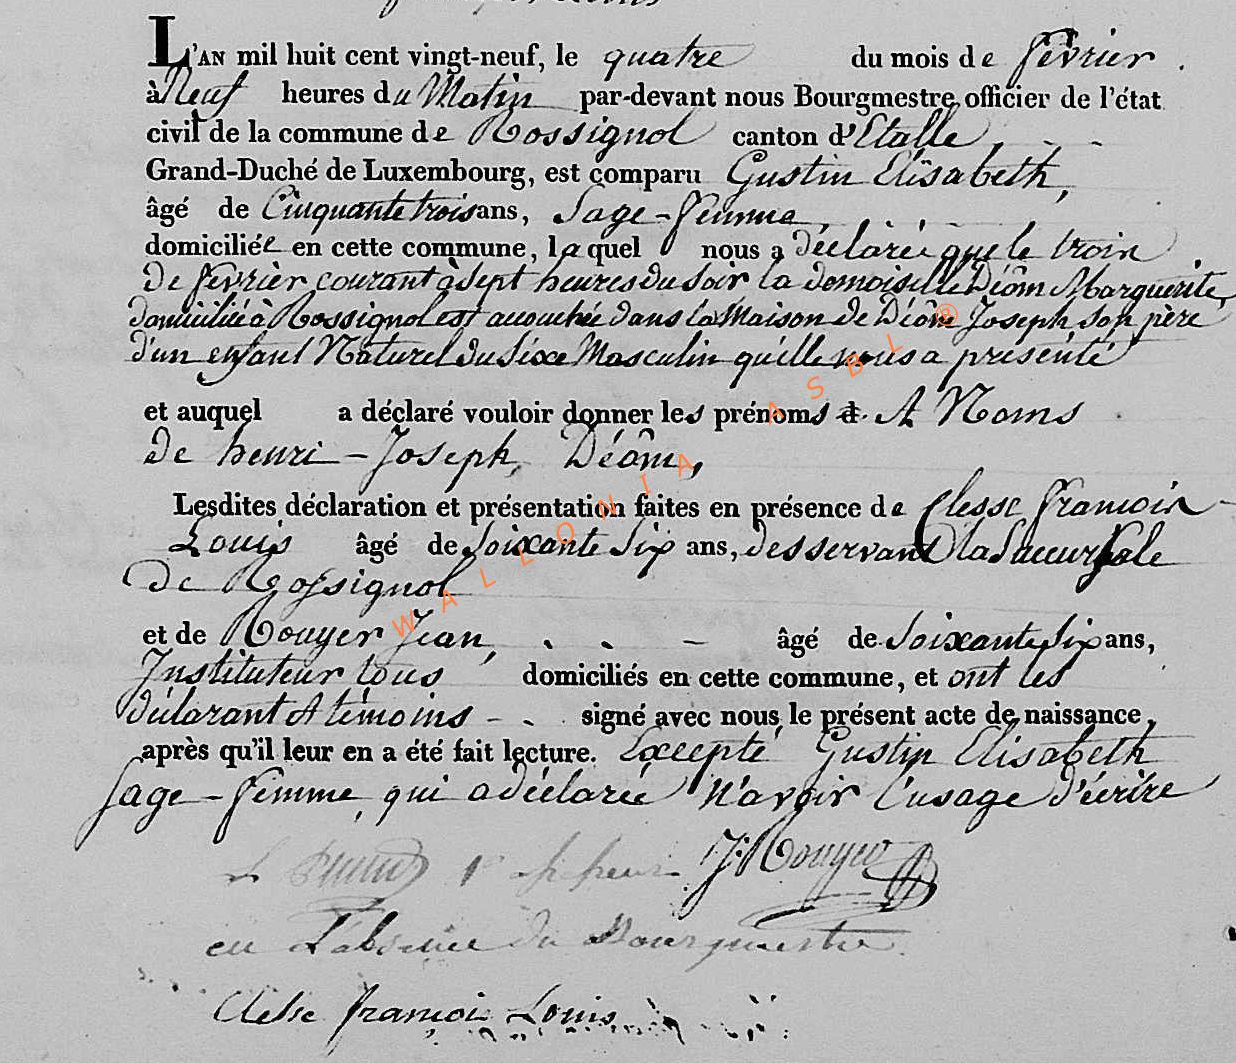 L'AN mil huit cent vingt-neuf, le quatre du mois de février .
à Neuf heures du Matin par-devant nous Bourgmestre officier de l'état
civil de la commune de Rossignol canton d'Etalle
Grand-Duché de Luxembourg, est comparu Gustin Elisabeth,
âgé de Cinquante trois ans, Sage-femme
domiciliée en cette commune, laquel nous a déclarée que le trois
de février courant à sept heures du soir la demoiselle Déôm Marguerite,
domiciliée à Rossignol est accouchée dans la Maison de Déôm Joseph son père
d'un enfant Naturel du Sixe Masculin qu'elle nous a présenté
et auquel a déclaré vouloir donner les prénoms d. et Noms
de henri-Joseph, Déôm,
Lesdites déclaration et présentation faites en présence de Clesse françois
Louis âgé de Soixante Six ans, desservant la Succursale
de Rossignol
et de Rouyer Jean, âgé de Soixante Six ans,
Instituteur tous domiciliés en cette commune, et ont les
déclarant et témoins signé avec nous le présent acte de naissance,
après qu'il leur en a été fait lecture. Excepté Gustin Elisabeth
Sage-femme, qui a déclarée N'avoir l'usage d'écrire
J: Rouyer
en L'absence du Bourgmestre.
Clesse françois Louis
WALLONIA ASBL ®